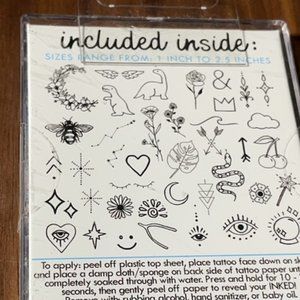 included inside:
SIZES RANGE FROM: 1 INCH TO 2.5 INCHES
&
To apply: peel off plastic top sheet, place tattoo face down on sk
and place a damp cloth/sponge on back side of tattoo paper until
completely soaked through with water. Press and hold for 10 -
seconds, then gently peel off paper to reveal your INKED!
Remove with rubbing alcohol, hand sanitizer, or baby oil